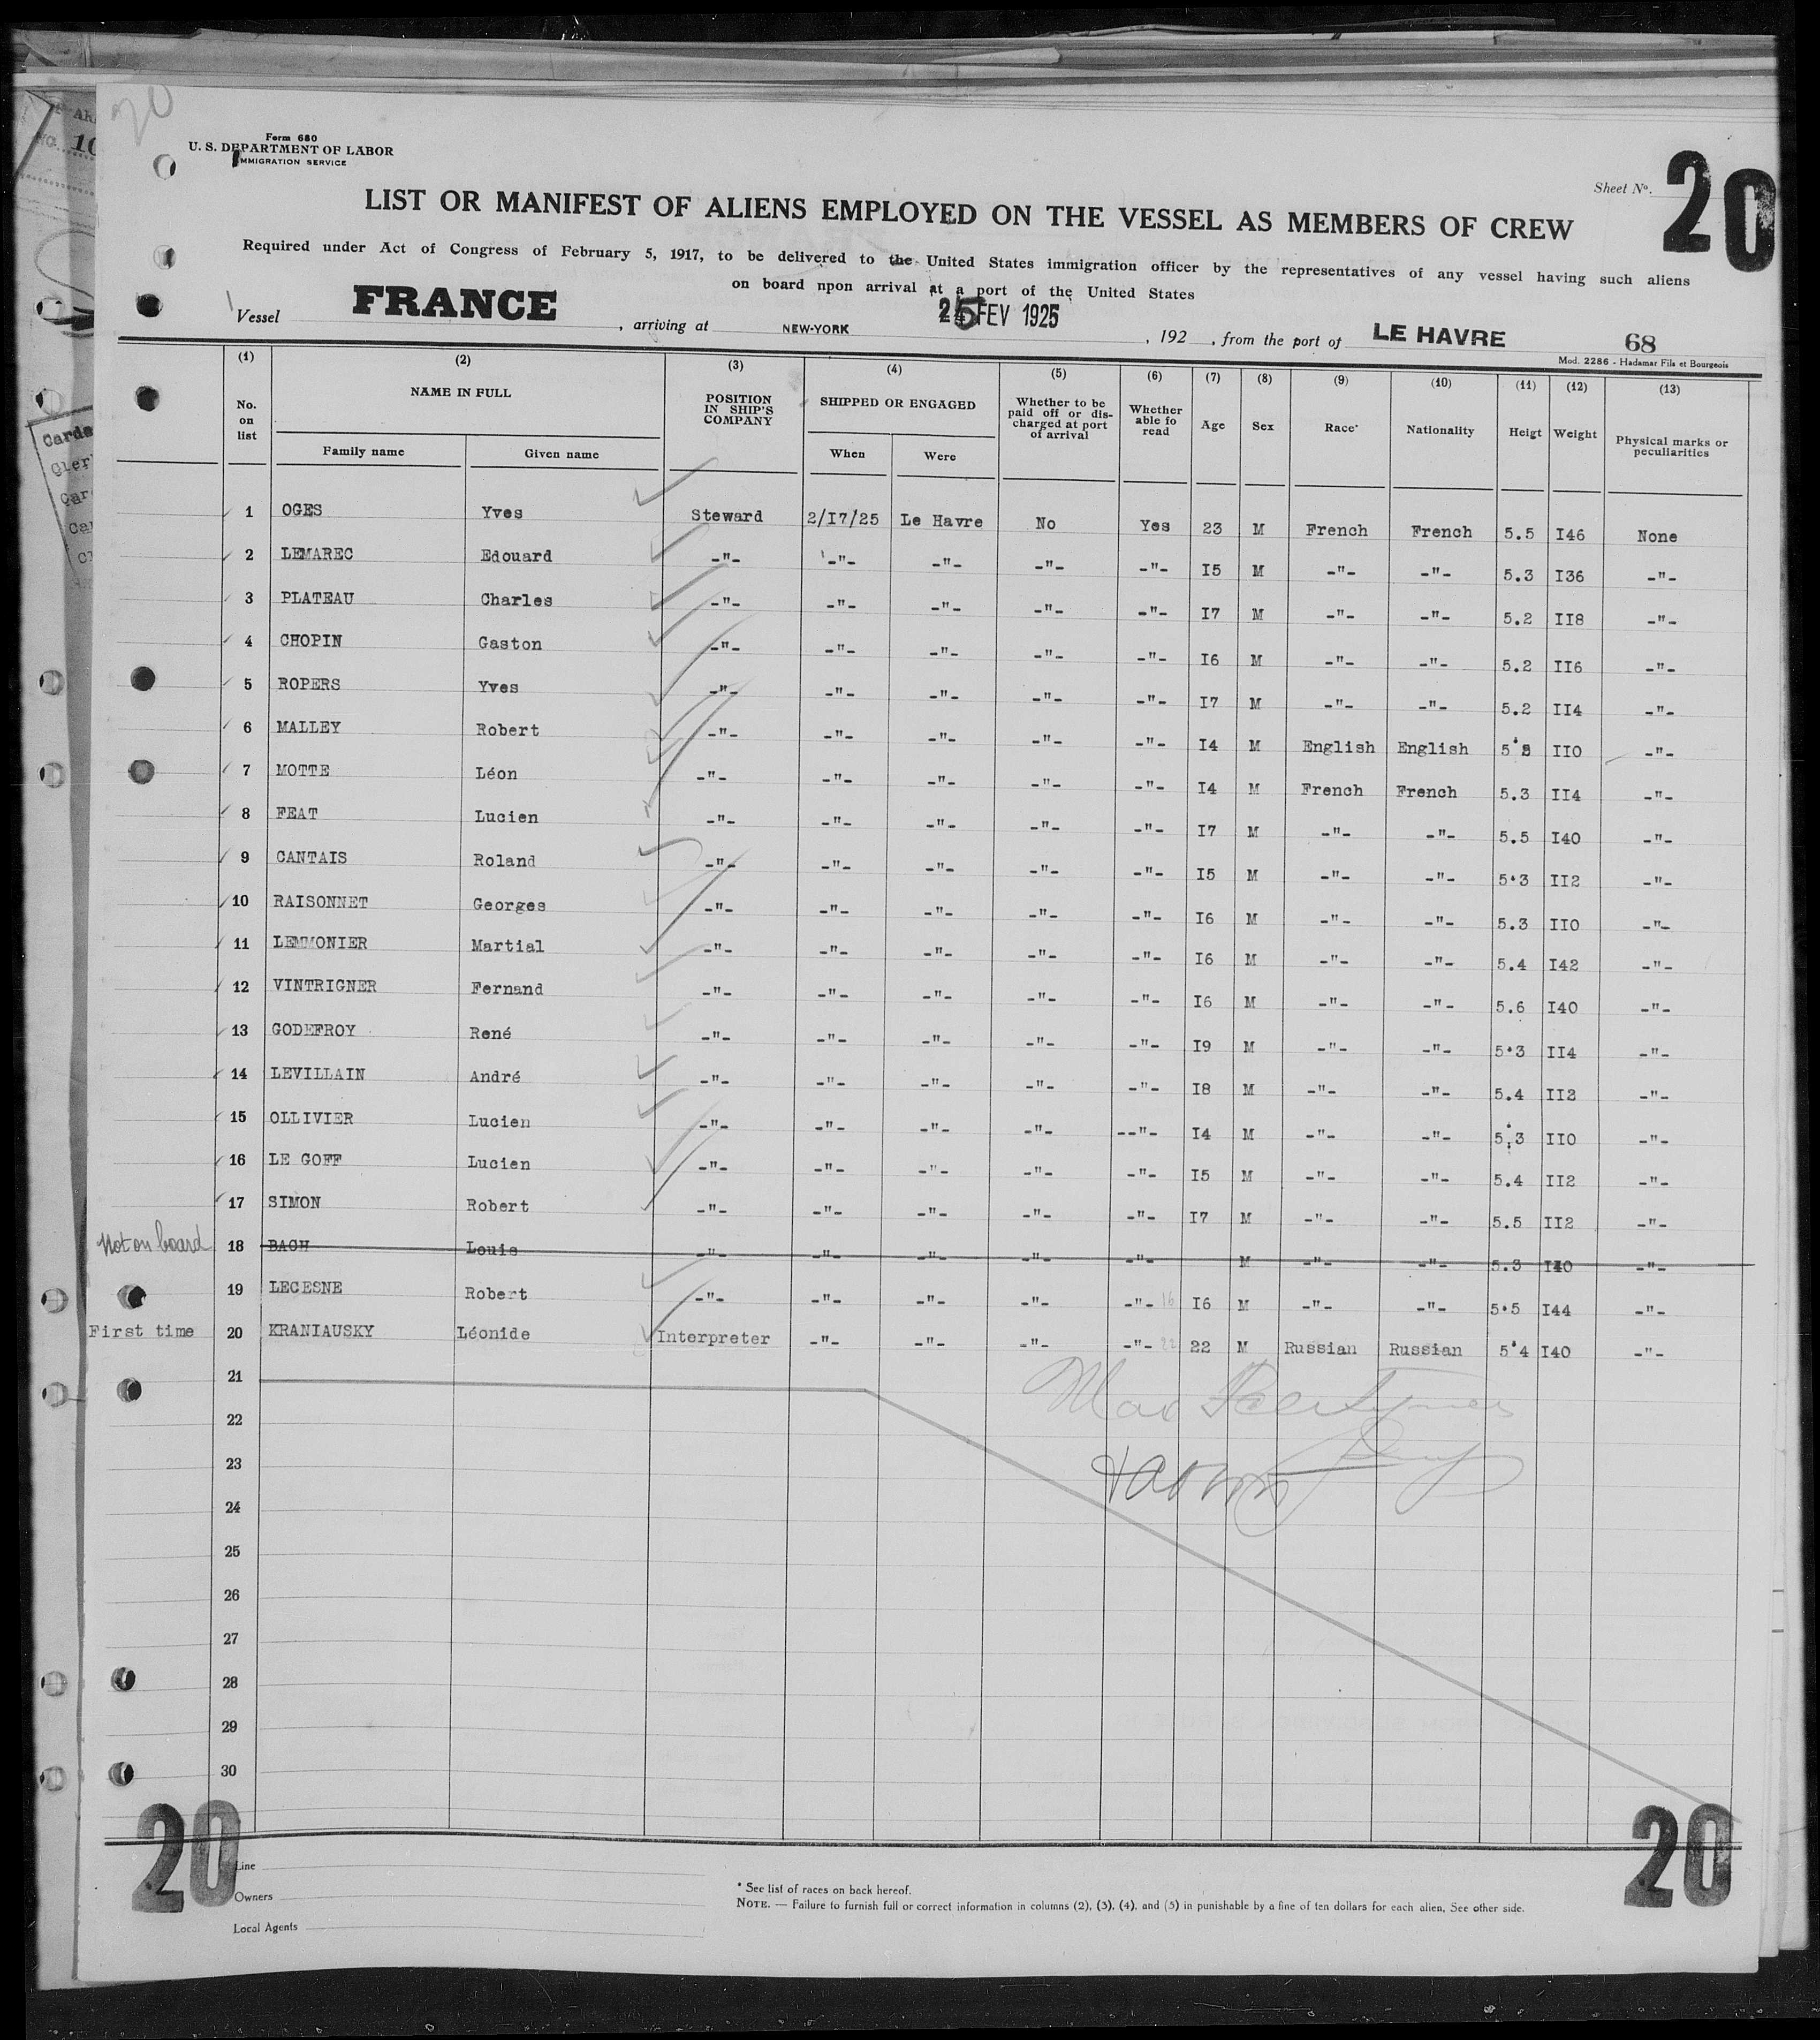 20
Form 680
U. S. DEPARTMENT OF LABOR
IMMIGRATION SERVICE
Sheet No. 20
LIST OR MANIFEST OF ALIENS EMPLOYED ON THE VESSEL AS MEMBERS OF CREW
Required under Act of Congress of February 5, 1917, to be delivered to the United States immigration officer by the representatives of any vessel having such aliens
on board npon arrival at a port of the United States
Vessel FRANCE, arriving at NEW-YORK 25 FEV 1925, 192 , from the port of LE HAVRE
68
Mod. 2286 - Hadamar Fils et Bourgeois
(1) (2) (3) (4) (5) (6) (7) (8) (9) (10) (11) (12) (13)
No. on list NAME IN FULL Family name Given name POSITION IN SHIP'S COMPANY SHIPPED OR ENGAGED When Were Whether to be paid off or discharged at port of arrival Whether able fo read Age Sex Race* Nationality Heigt Weight Physical marks or peculiarities
1 OGES Yves Steward 2/I7/25 Le Havre No Yes 23 M French French 5.5 I46 None
2 LEMAREC Edouard -"- -"- -"- -"- -"- I5 M -"- -"- 5.3 I36 -"-
3 PLATEAU Charles -"- -"- -"- -"- -"- I7 M -"- -"- 5.2 II8 -"-
4 CHOPIN Gaston -"- -"- -"- -"- -"- I6 M -"- -"- 5.2 II6 -"-
5 ROPERS Yves -"- -"- -"- -"- -"- I7 M -"- -"- 5.2 II4 -"-
6 MALLEY Robert -"- -"- -"- -"- -"- I4 M English English II0 -"-
7 MOTTE Léon -"- -"- -"- -"- -"- I4 M French French 5.3 II4 -"-
8 FEAT Lucien -"- -"- -"- -"- -"- I7 M -"- -"- 5.5 I40 -"-
9 CANTAIS Roland -"- -"- -"- -"- -"- I5 M -"- -"- 5.3 II2 -"-
10 RAISONNET Georges -"- -"- -"- -"- -"- I6 M -"- -"- 5.3 II0 -"-
11 LEMMONIER Martial -"- -"- -"- -"- -"- I6 M -"- -"- 5.4 I42 -"-
12 VINTRIGNER Fernand -"- -"- -"- -"- -"- I6 M -"- -"- 5.6 I40 -"-
13 GODEFROY René -"- -"- -"- -"- -"- I9 M -"- -"- 5.3 II4 -"-
14 LEVILLAIN André -"- -"- -"- -"- -"- I8 M -"- -"- 5.4 II2 -"-
15 OLLIVIER Lucien -"- -"- -"- -"- --"- I4 M -"- -"- 5.3 II0 -"-
16 LE GOFF Lucien -"- -"- -"- -"- -"- I5 M -"- -"- 5.4 II2 -"-
17 SIMON Robert -"- -"- -"- -"- -"- I7 M -"- -"- 5.5 II2 -"-
Not on board 18 BAGH Louis -"- -"- -"- -"- -"- M -"- -"- 5.3 I40 -"-
19 LECESNE Robert -"- -"- -"- -"- -"- 16 I6 M -"- -"- 5.5 I44 -"-
First time 20 KRANIAUSKY Léonide Interpreter -"- -"- -"- -"- 22 22 M Russian Russian 5'4 I40 -"-
21
22
23
24
25
26
27
28
29
30
20 20
Line
Owners
Local Agents
* See list of races on back hereof.
NOTE. — Failure to furnish full or correct information in columns (2), (3), (4), and (5) in punishable by a fine of ten dollars for each alien, See other side.